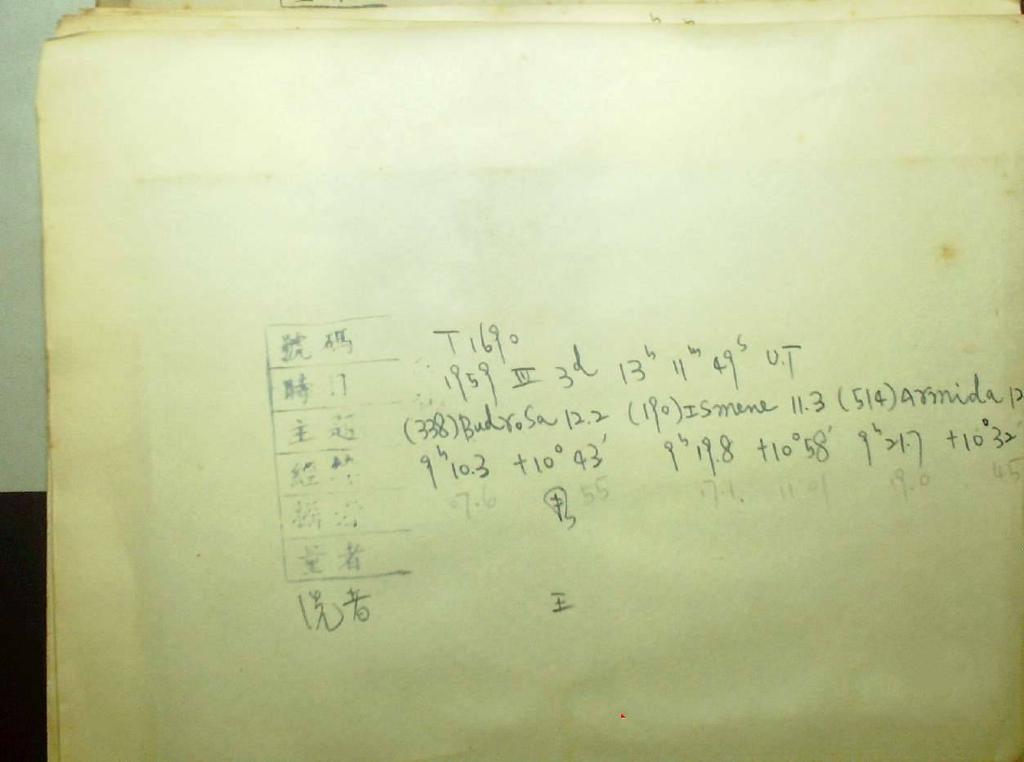 號碼 T 1690
時 1959 III 3d 13h 11m 49s U.T
主題 (338)Budrosa 12.2 (190)Ismene 11.3 (514)Armida 12
經 9h10.3 +10°43′ 9h19.8 +10°58′ 9h21.7 +10°32′
07.6 55 17.1 11 01 19.0 45
量者
洗者 王